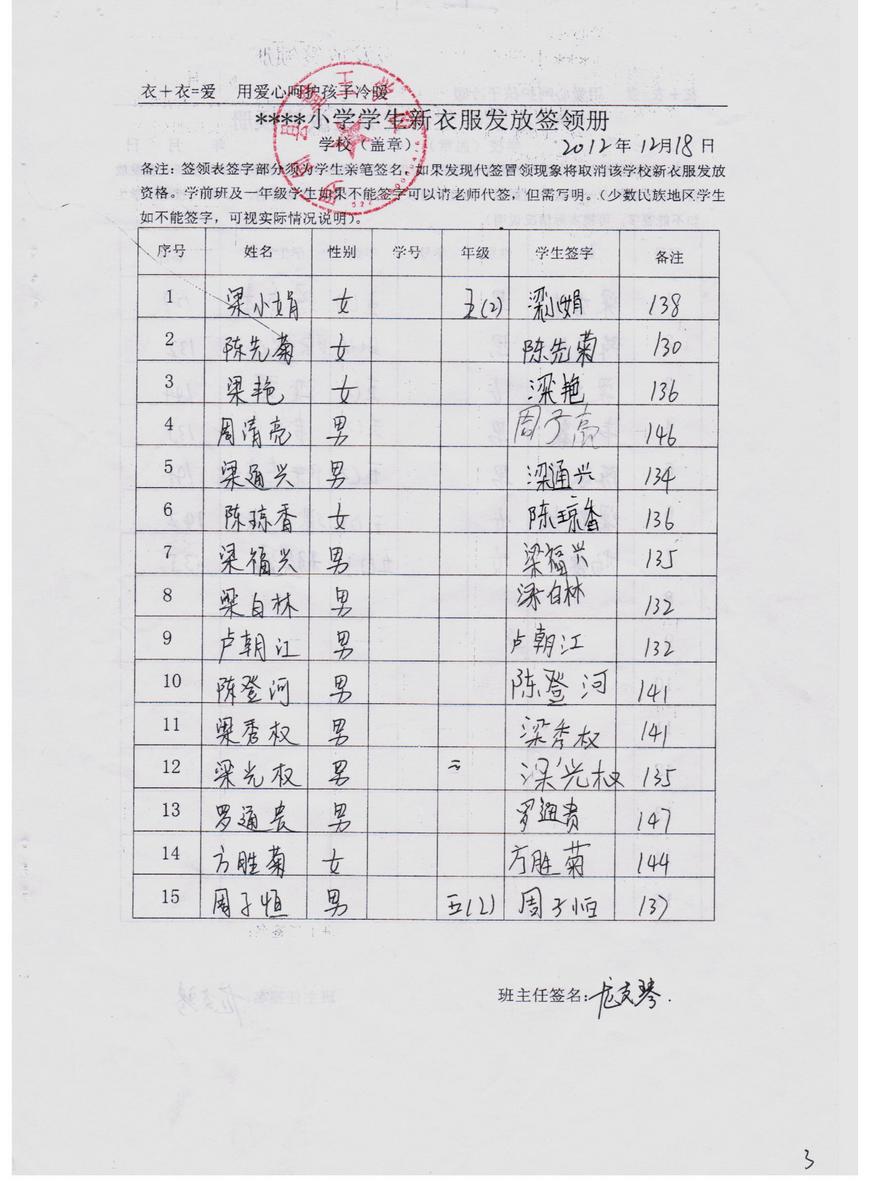 衣+衣=爱 用爱心呵护孩子冷暖
****小学学生新衣服发放签领册
学校(盖章) 2012年12月18日
备注:签领表签字部分须为学生亲笔签名,如果发现代签冒领现象将取消该学校新衣服发放
资格。学前班及一年级学生如果不能签字可以请老师代签,但需写明。(少数民族地区学生
如不能签字,可视实际情况说明)。
序号 姓名 性别 学号 年级 学生签字 备注
1 梁小娟 女 五(2) 梁小娟 138
2 陈先菊 女 陈先菊 130
3 梁艳 女 梁艳 136
4 周清亮 男 周子亮 146
5 梁通兴 男 梁通兴 134
6 陈琼香 女 陈琼香 136
7 梁福兴 男 梁福兴 135
8 梁自林 男 梁自林 132
9 卢朝江 男 卢朝江 132
10 陈登河 男 陈登河 141
11 梁秀权 男 梁秀权 141
12 梁光权 男 梁光权 135
13 罗通贵 男 罗通贵 147
14 方胜菊 女 方胜菊 144
15 周子恒 男 五(2) 周子恒 137
班主任签名:
3